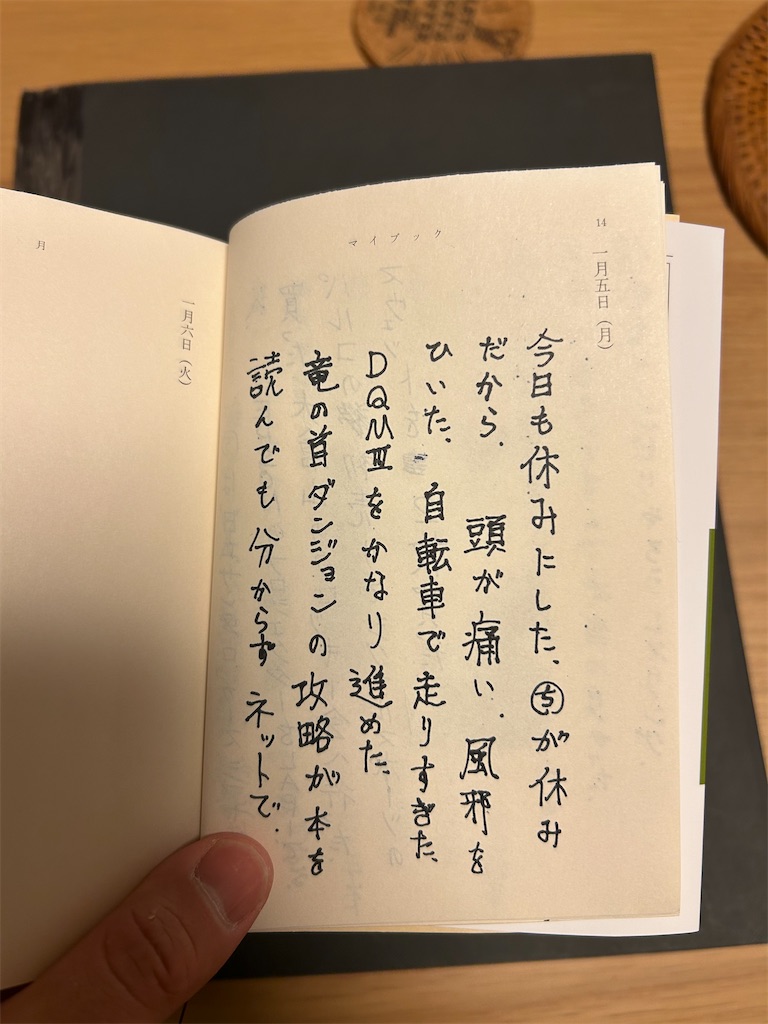 14
マイブック
一月五日（月）
今日も休みにした、㋠が休み
だから、頭が痛い、風邪を
ひいた、自転車で走りすぎた、
DQMⅢをかなり進めた、
竜の首ダンジョンの攻略が本を
読んでも分からず ネットで、
一月六日（火）
月